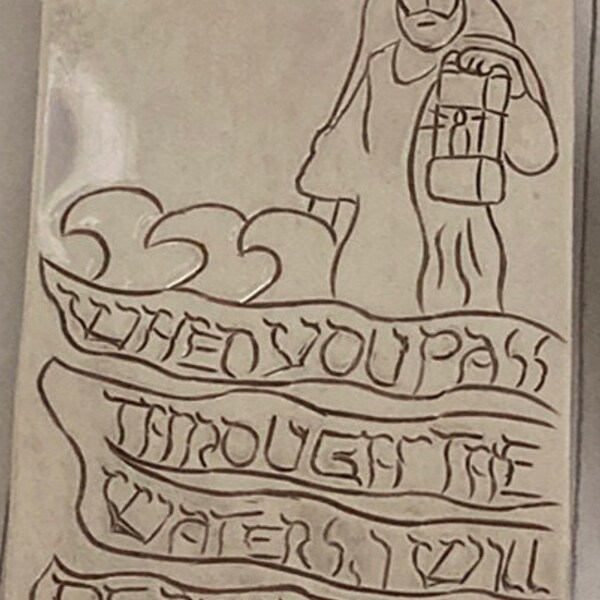 WHEN YOU PASS
THROUGH THE
WATERS, I WILL
BE